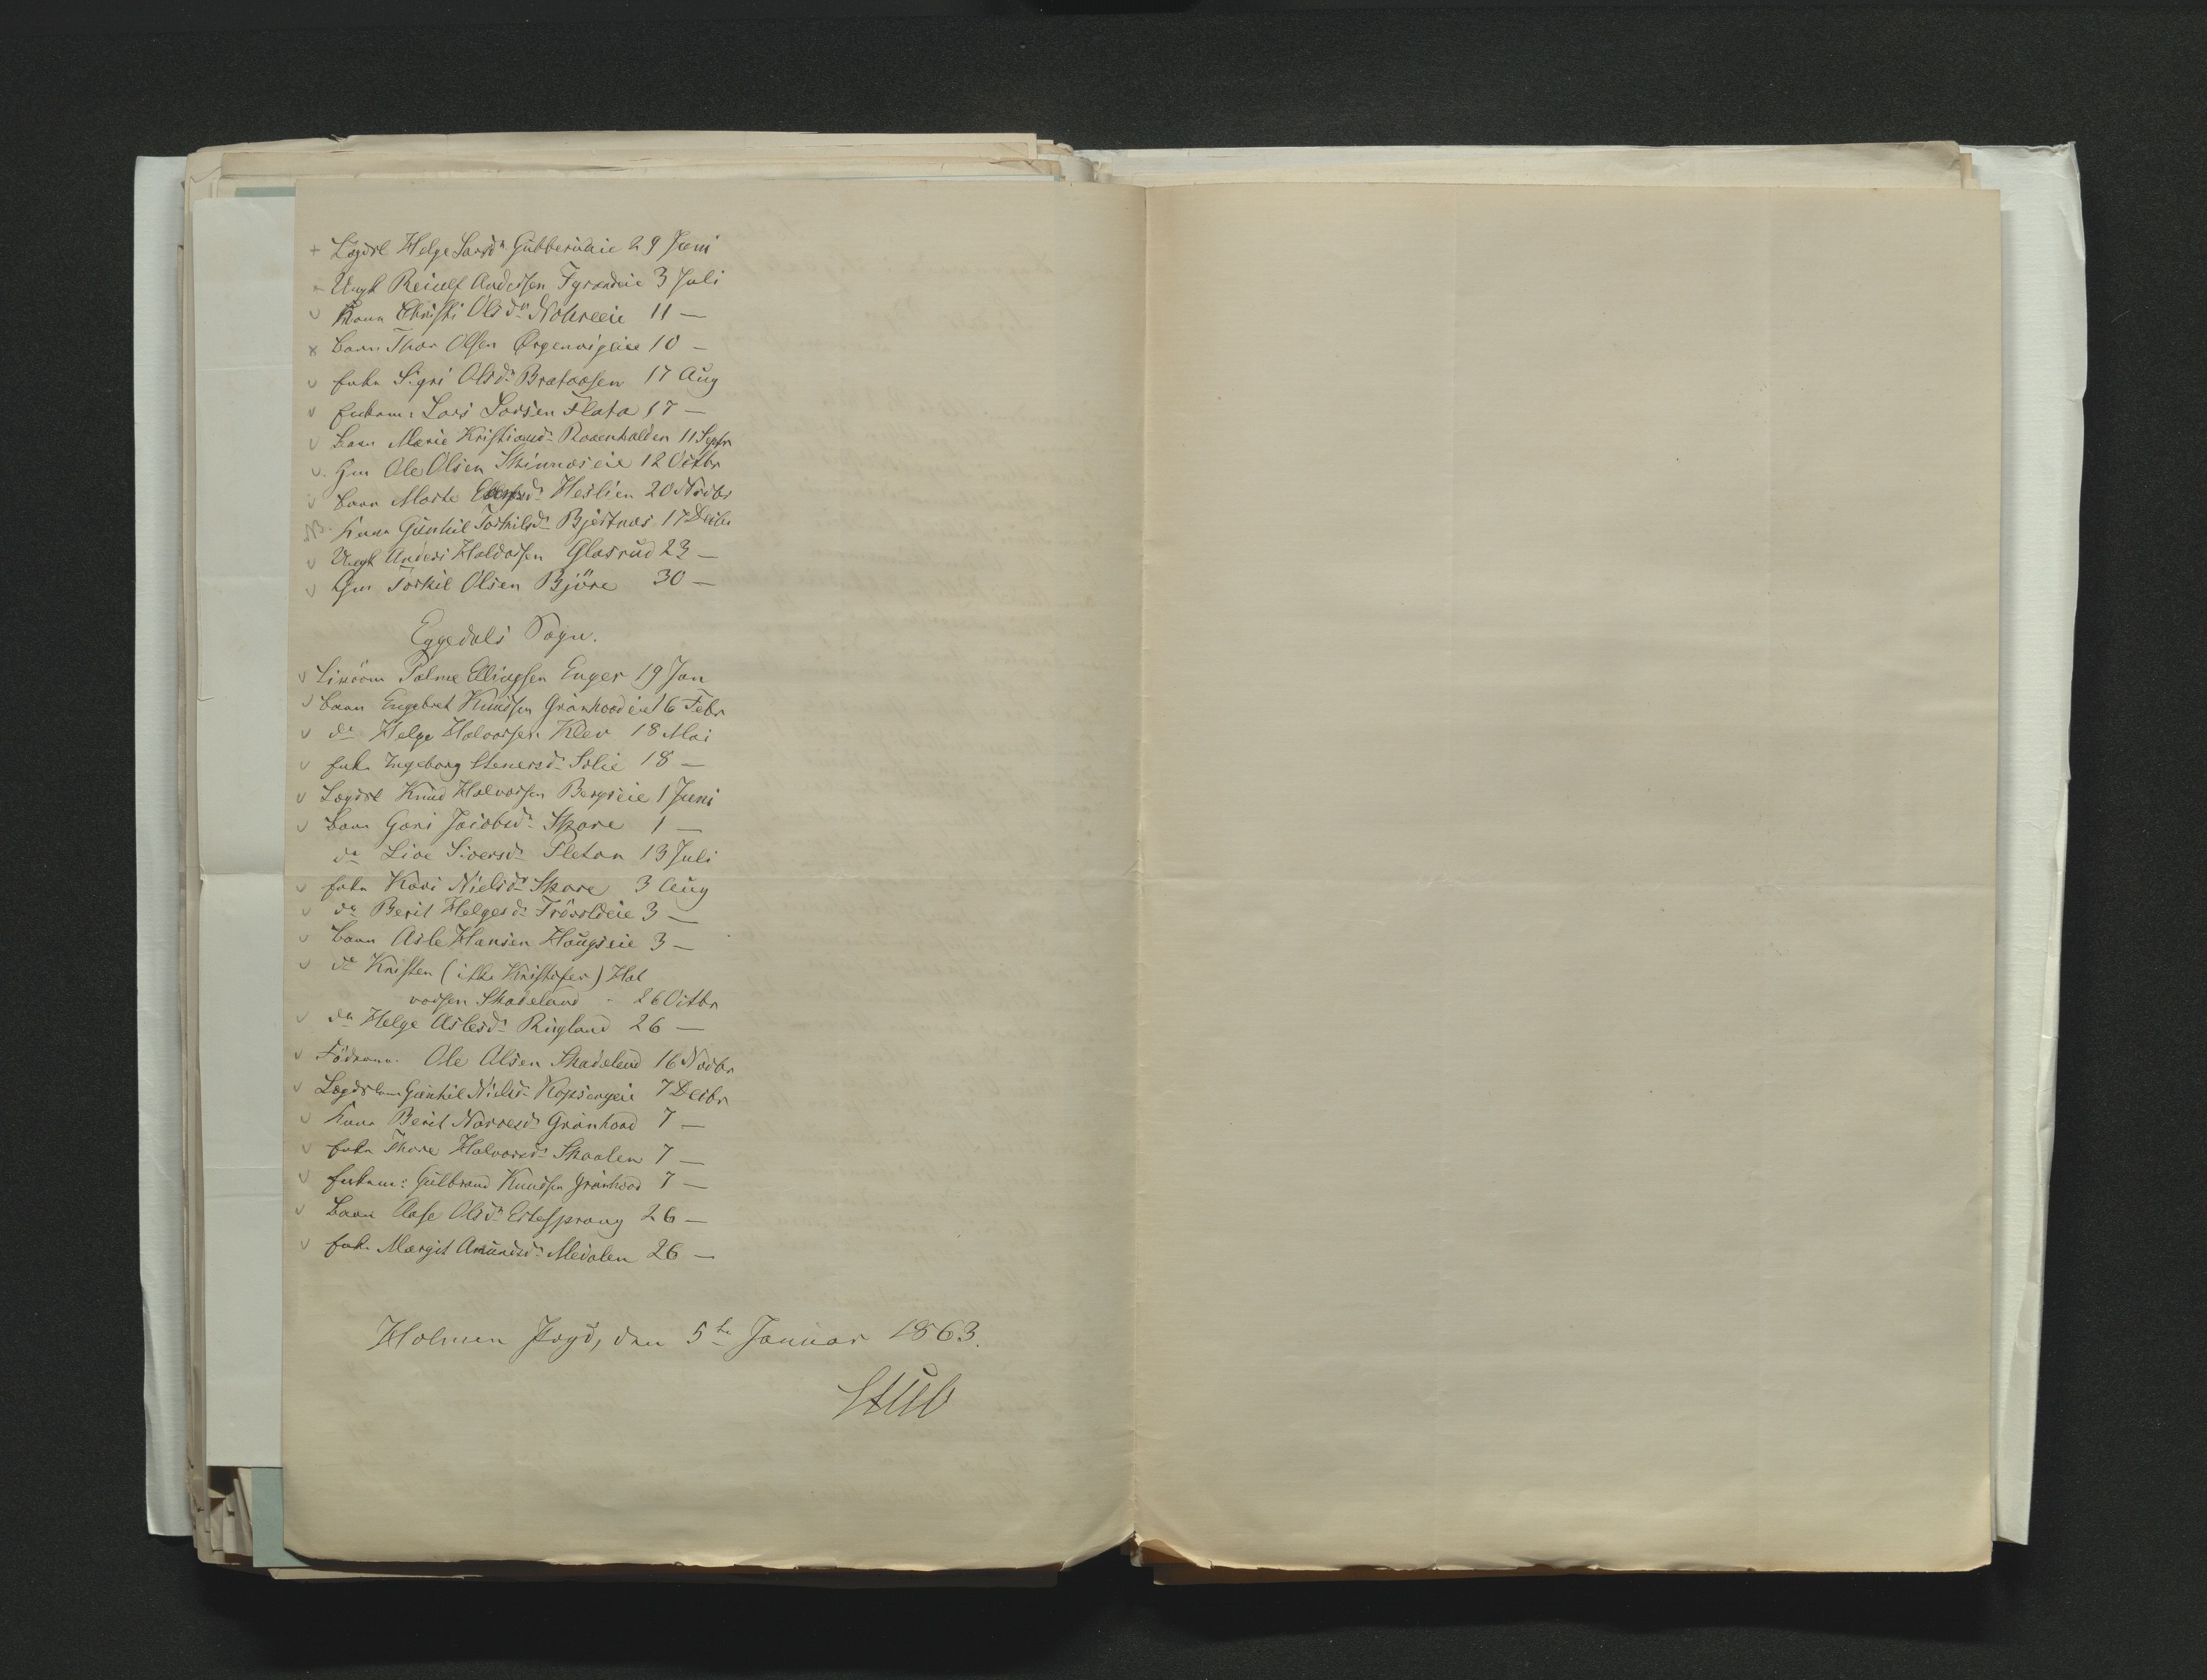 + Lægdsl Helge Larsdr Gubberudeie 29 Juni
Ungk Reiulf Andersen Fyrandeie 3 Juli
v Kone Christi Olsdr Nohreeie 11 —
x Barn Thor Olsen Ørgenvigeie 10 —
v Enke Sigri Olsdr Brataasen 17 Aug
v Enkem: Lars Larsen Flata 17 —
v Barn Marie Kristiansdr Roaenhalden 11 Septr
v Gm Ole Olsen Skinnæseie 12 Octbr
v Barn Marte Heslien 20 Novbr
NB. Kone Gunhil Torkilsdr Bjertnæs 17 Decbr
v Ungk Anders Haldorsen Glasrud 23 —
v Gm Torkil Olsen Björe 30 —
Eggedals Sogn.
v Palme Ellingsen Enger 19 Jan
v Barn Engebret Knudsen Grönhovdeie 16 Febr
v do Helge Halvorsen Klev 18 Mai
v Enke Ingeborg Stenersdr Solie 18 —
v Lægdsl Knud Halvorsen Bergseie 1 Juni
v Barn Gori Jacobsdr Skare 1 —
do Live Siversdr Sletan 13 Juli
v Enke Kari Nielsdr Skare 3 Aug
v do Berit Helgesdr Frövoldeie 3 —
v Barn Asle Hansen Haugseie 3 —
v do Kristen (ikke Kristofer) Hal
vorsen Skadeland - 26 Octbr
v do Helge Aslesdr Rugland 26 —
v Födraadm. Ole Olsen Skadeland 16 Novbr
v Lægdslem Gunhil Nielsdr Kopsengeie 7 Decbr
v Kone Berit Narvesdr Grönhovd 7 —
v Enke Thore Halvorsdr Skaalen 7 —
v Enkem: Gulbrand Knudsen Grönhovd 7 —
v Barn Aase Olsdr Eitesprang 26 —
v Enke Margit Amundsdr Medalen 26 —
Holmen Sogd, den 5te Januar 1863.
Stub